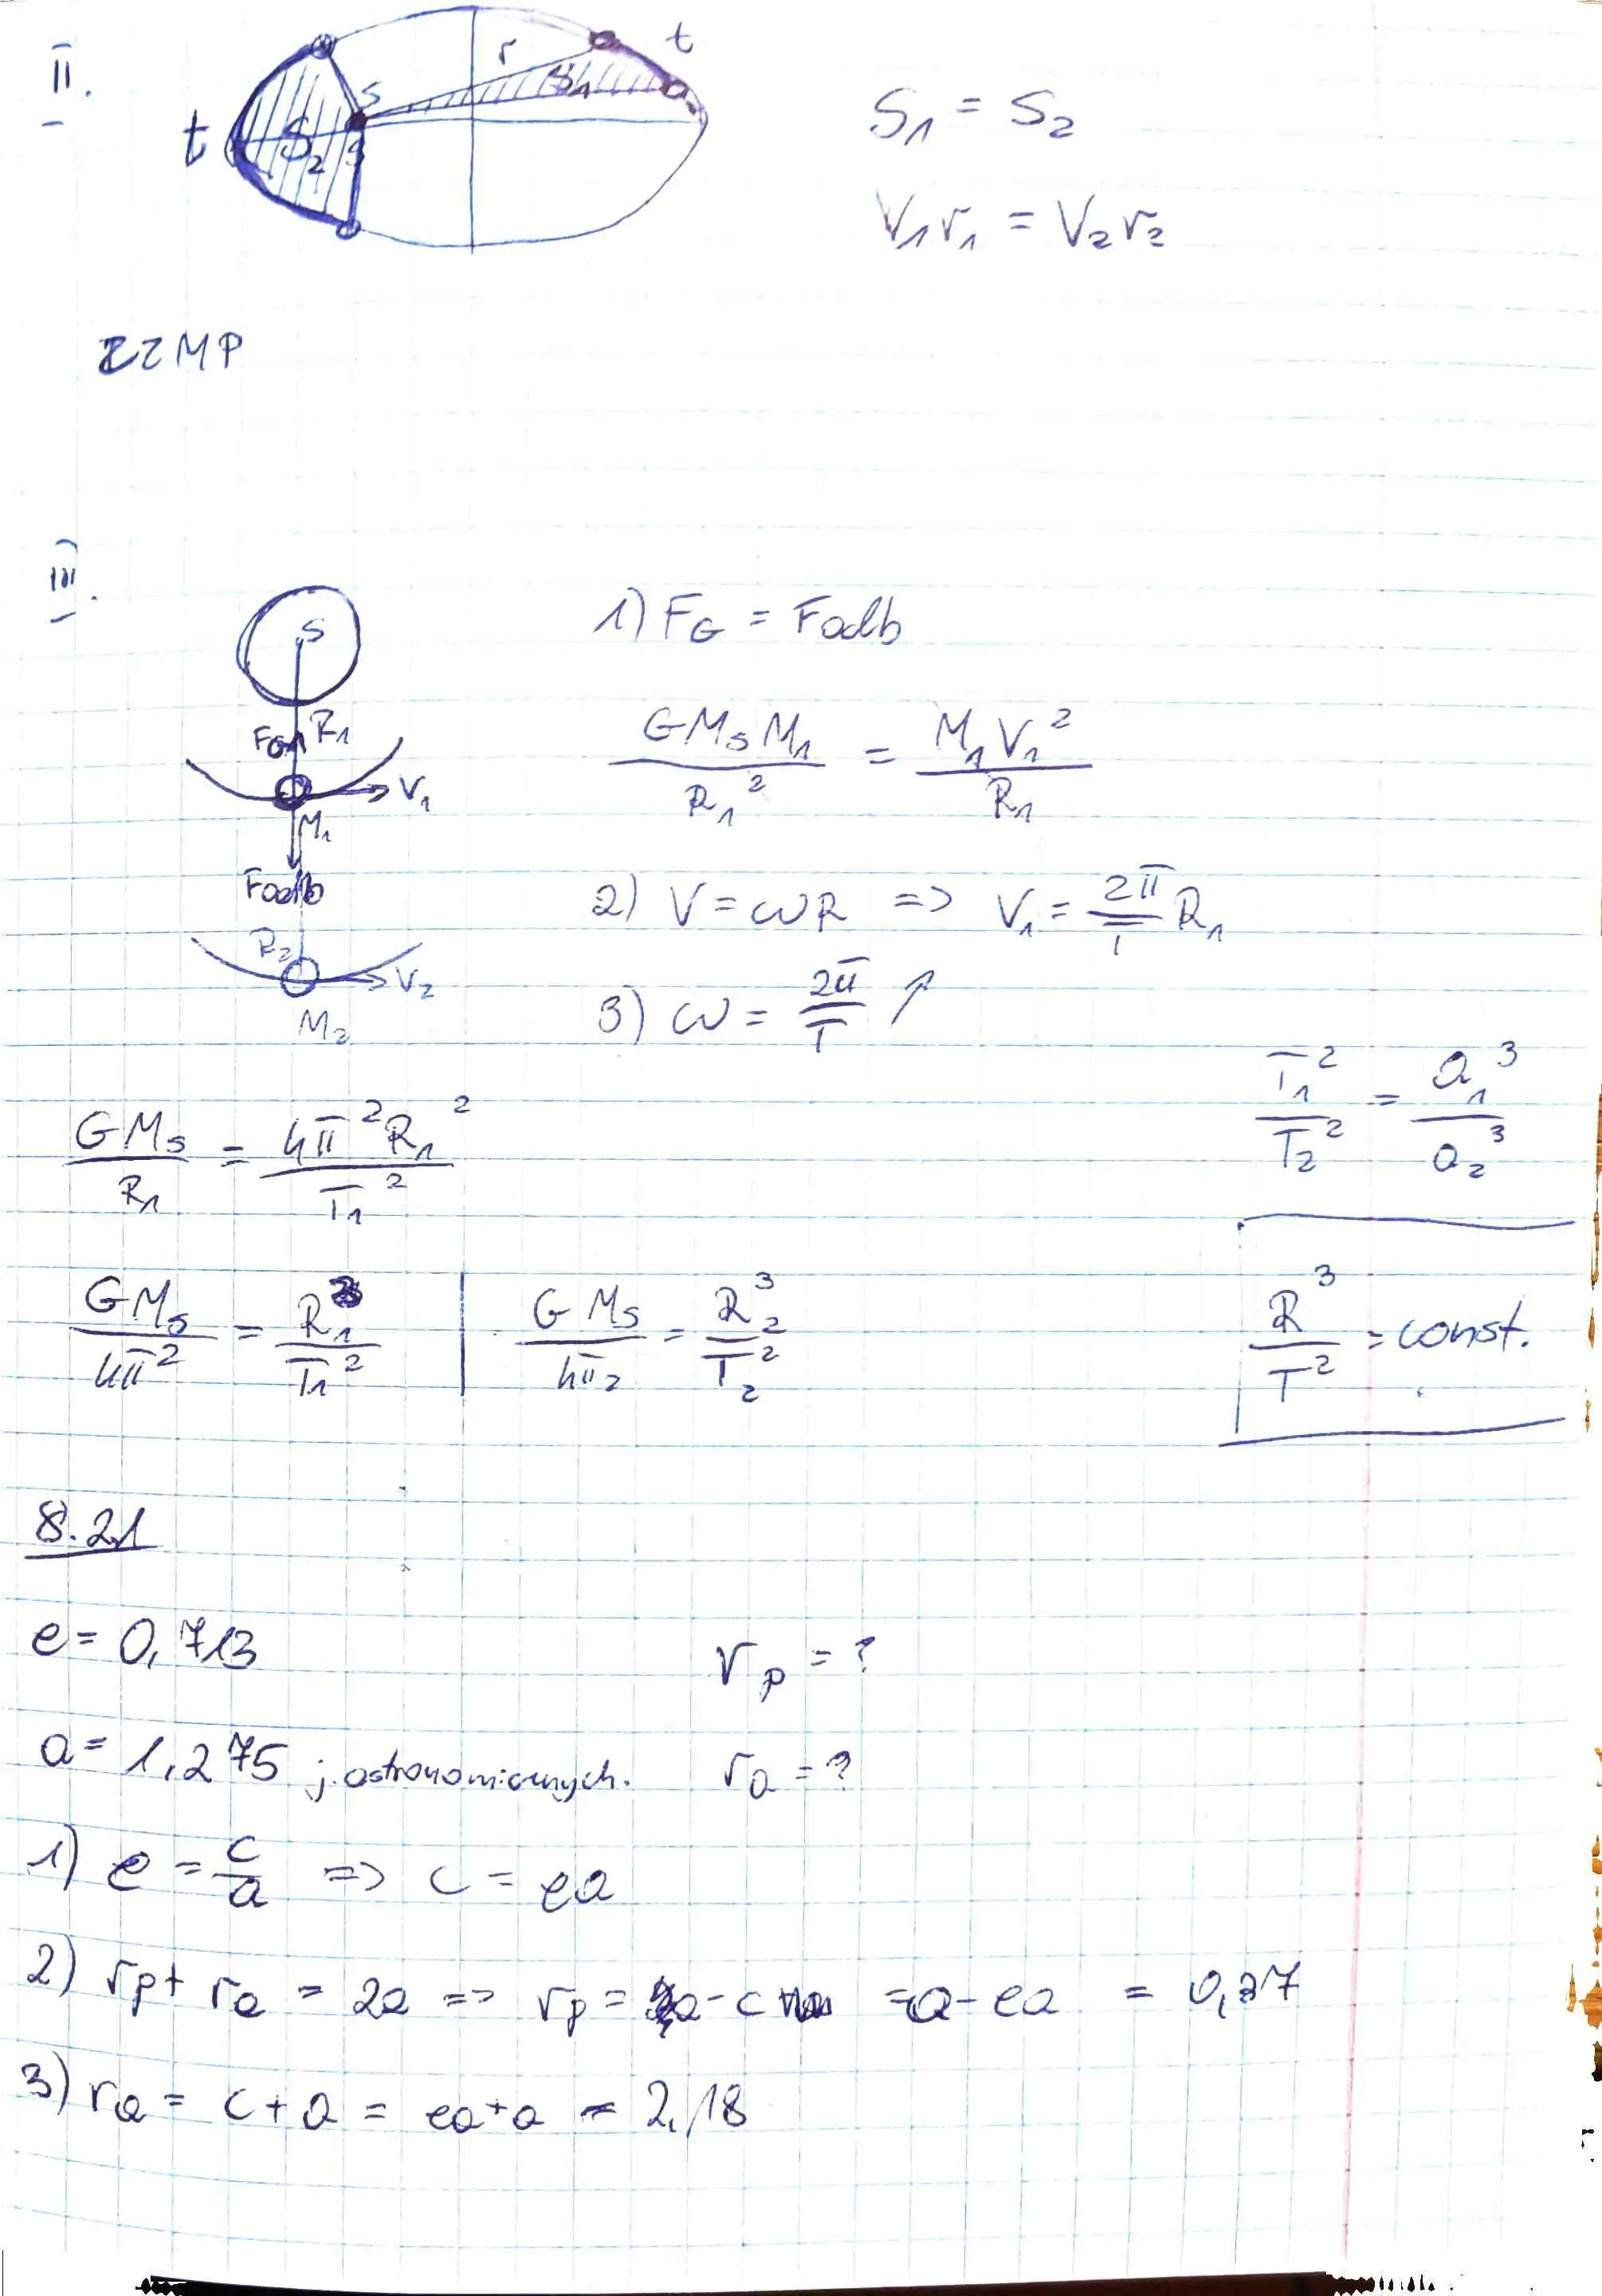 II.
t
S
r
S1
t
S2
S1 = S2
V1r1 = V2r2
ZZMP
III.
S
FG1 R1
V1
M1
Fodb
R2
V2
M2
1) FG = Fodb
GMsM1 / R1² = M1V1² / R1
2) V = ωR => V1 = 2π/T R1
3) ω = 2π/T ↗
GMs / R1 = 4π²R1² / T1²
T1² / T2² = a1³ / a2³
GMs / 4π² = R1³ / T1² | GMs / 4π2 = R2³ / T2²
R³ / T² = const.
8.21
e = 0,713
rp = ?
a = 1,275 j. astronomicznych.
ra = ?
1) e = c/a => c = ea
2) rp + ra = 2a => rp = a - c = a - ea = 0,37
3) ra = c + a = ea + a = 2,18